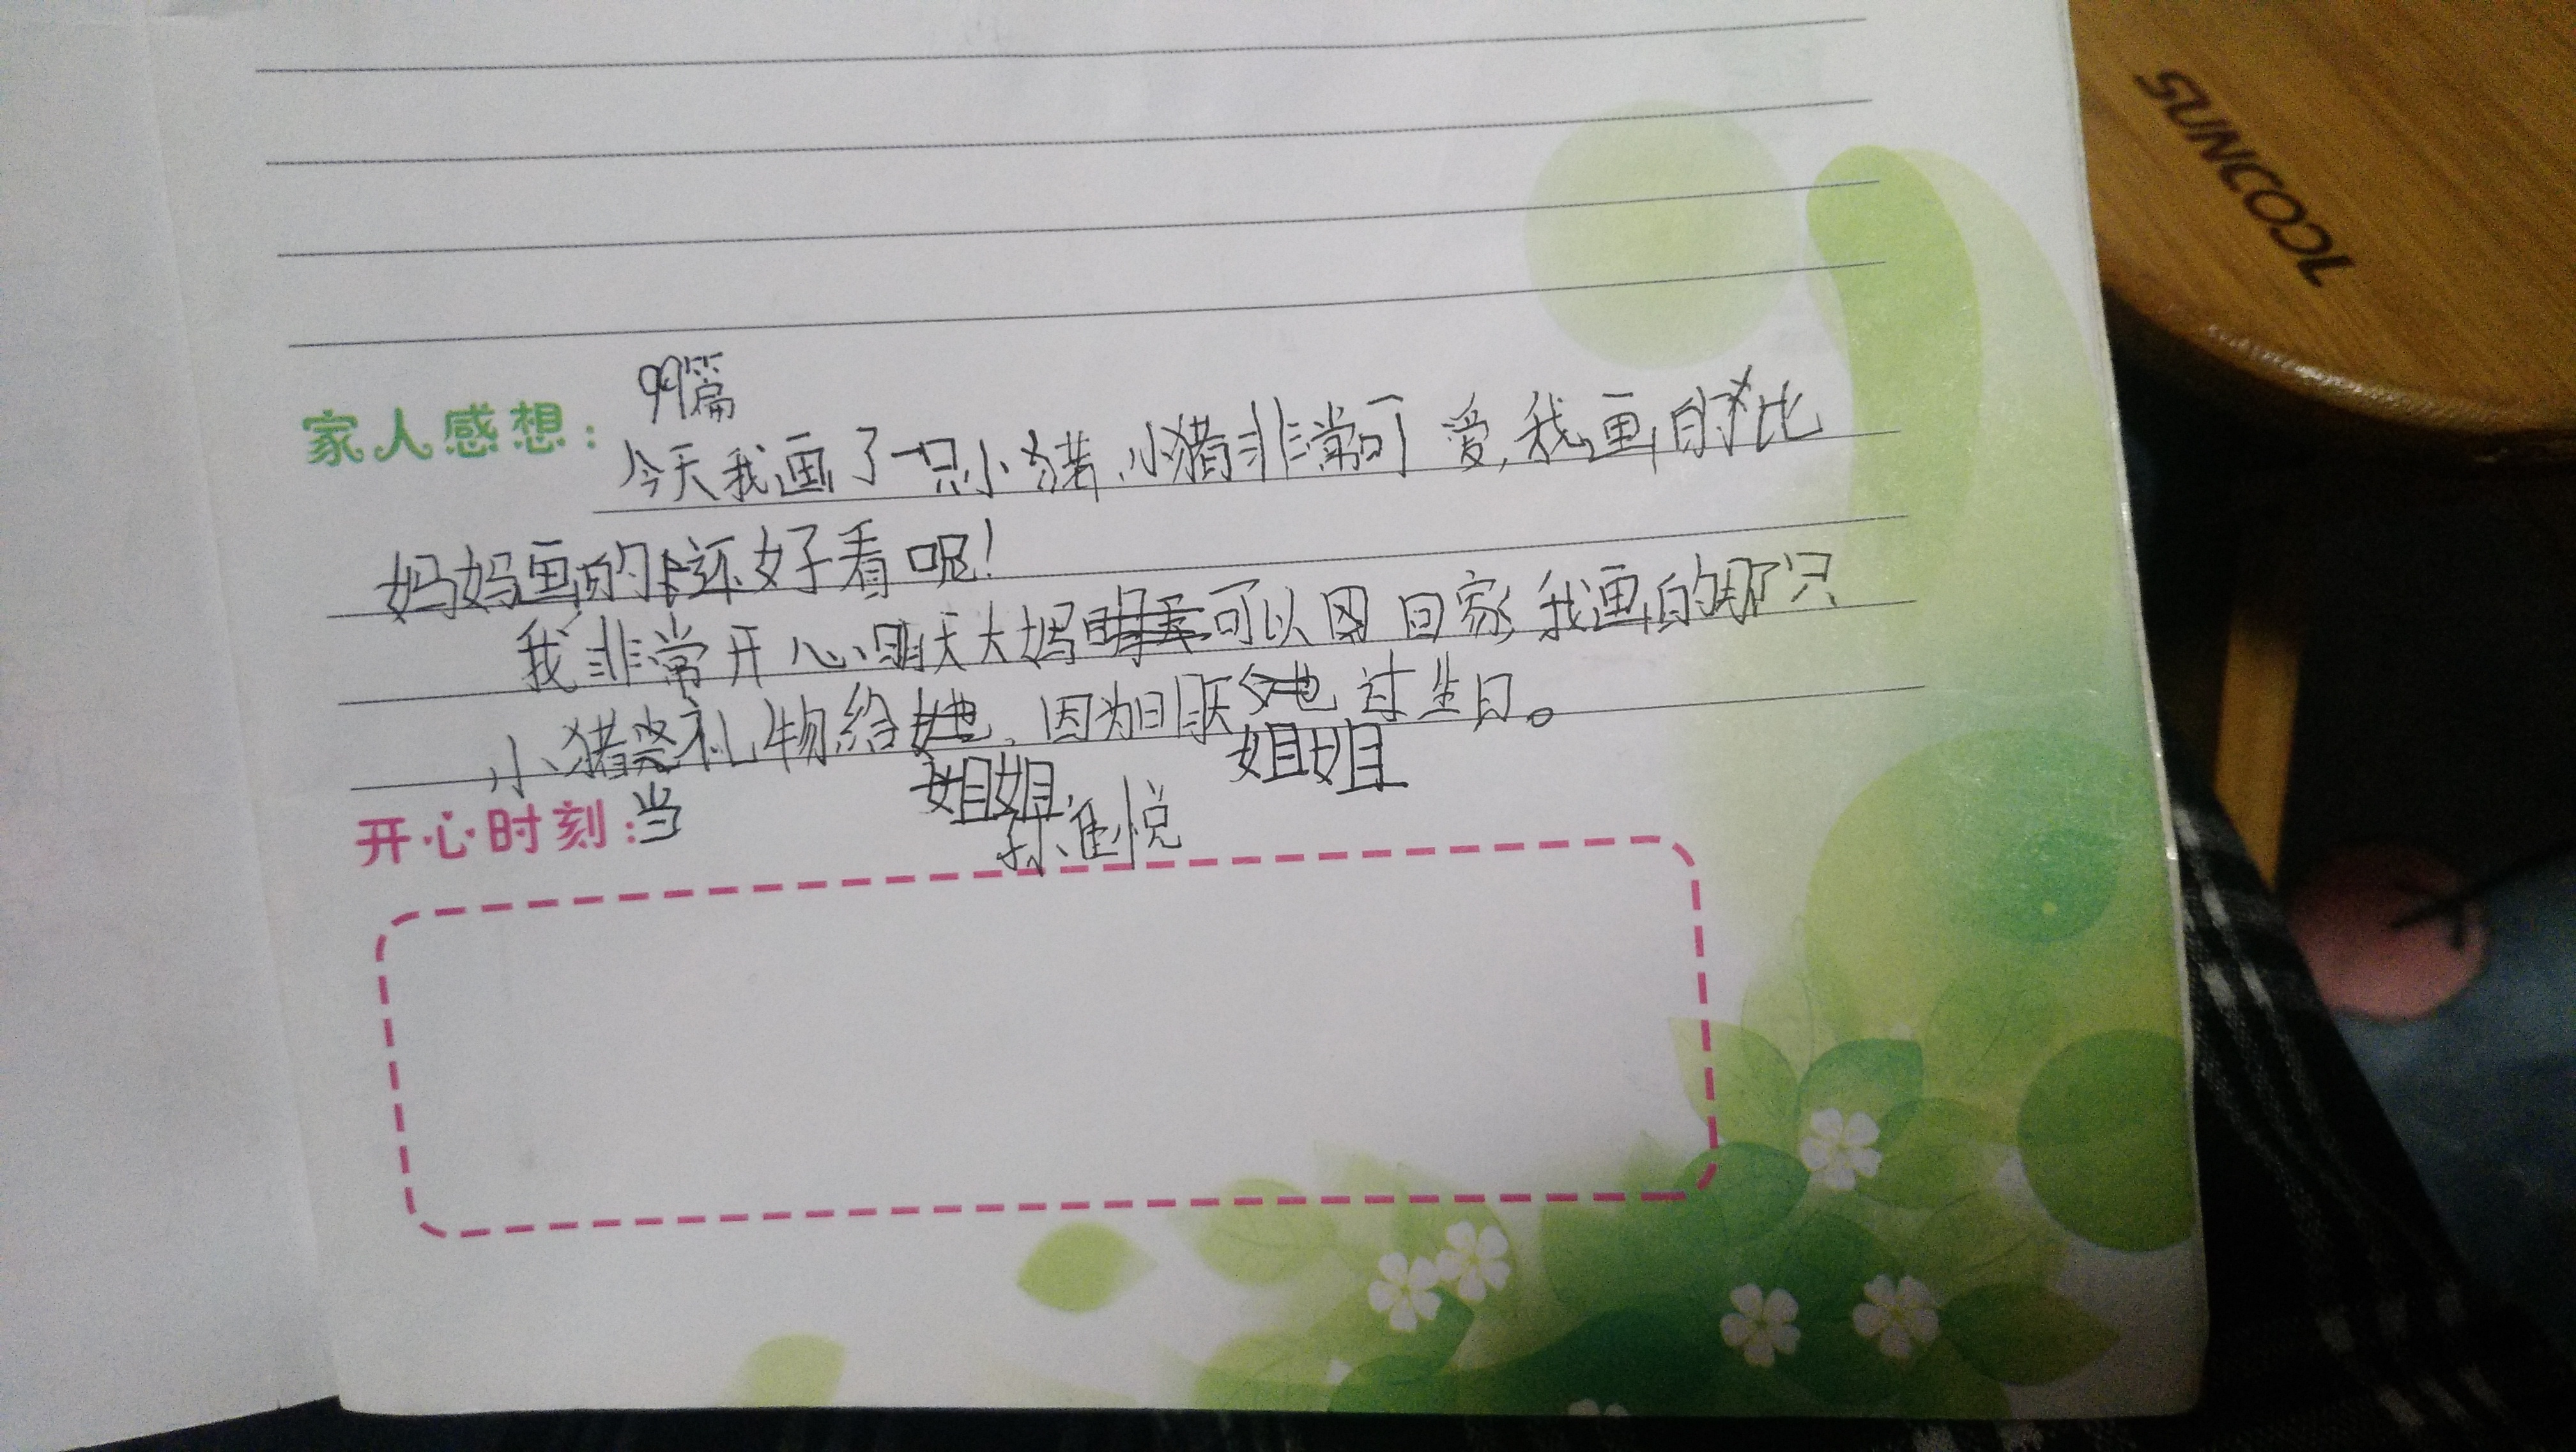 99篇
家人感想：今天我画了一只小猪，小猪非常可爱，我画的比
妈妈画的还好看呢！
我非常开心，明天大妈可以回家，我画的那只
小猪当礼物给姐姐，因为明天姐姐过生日。
开心时刻：
孙佳悦
SUNCOOL